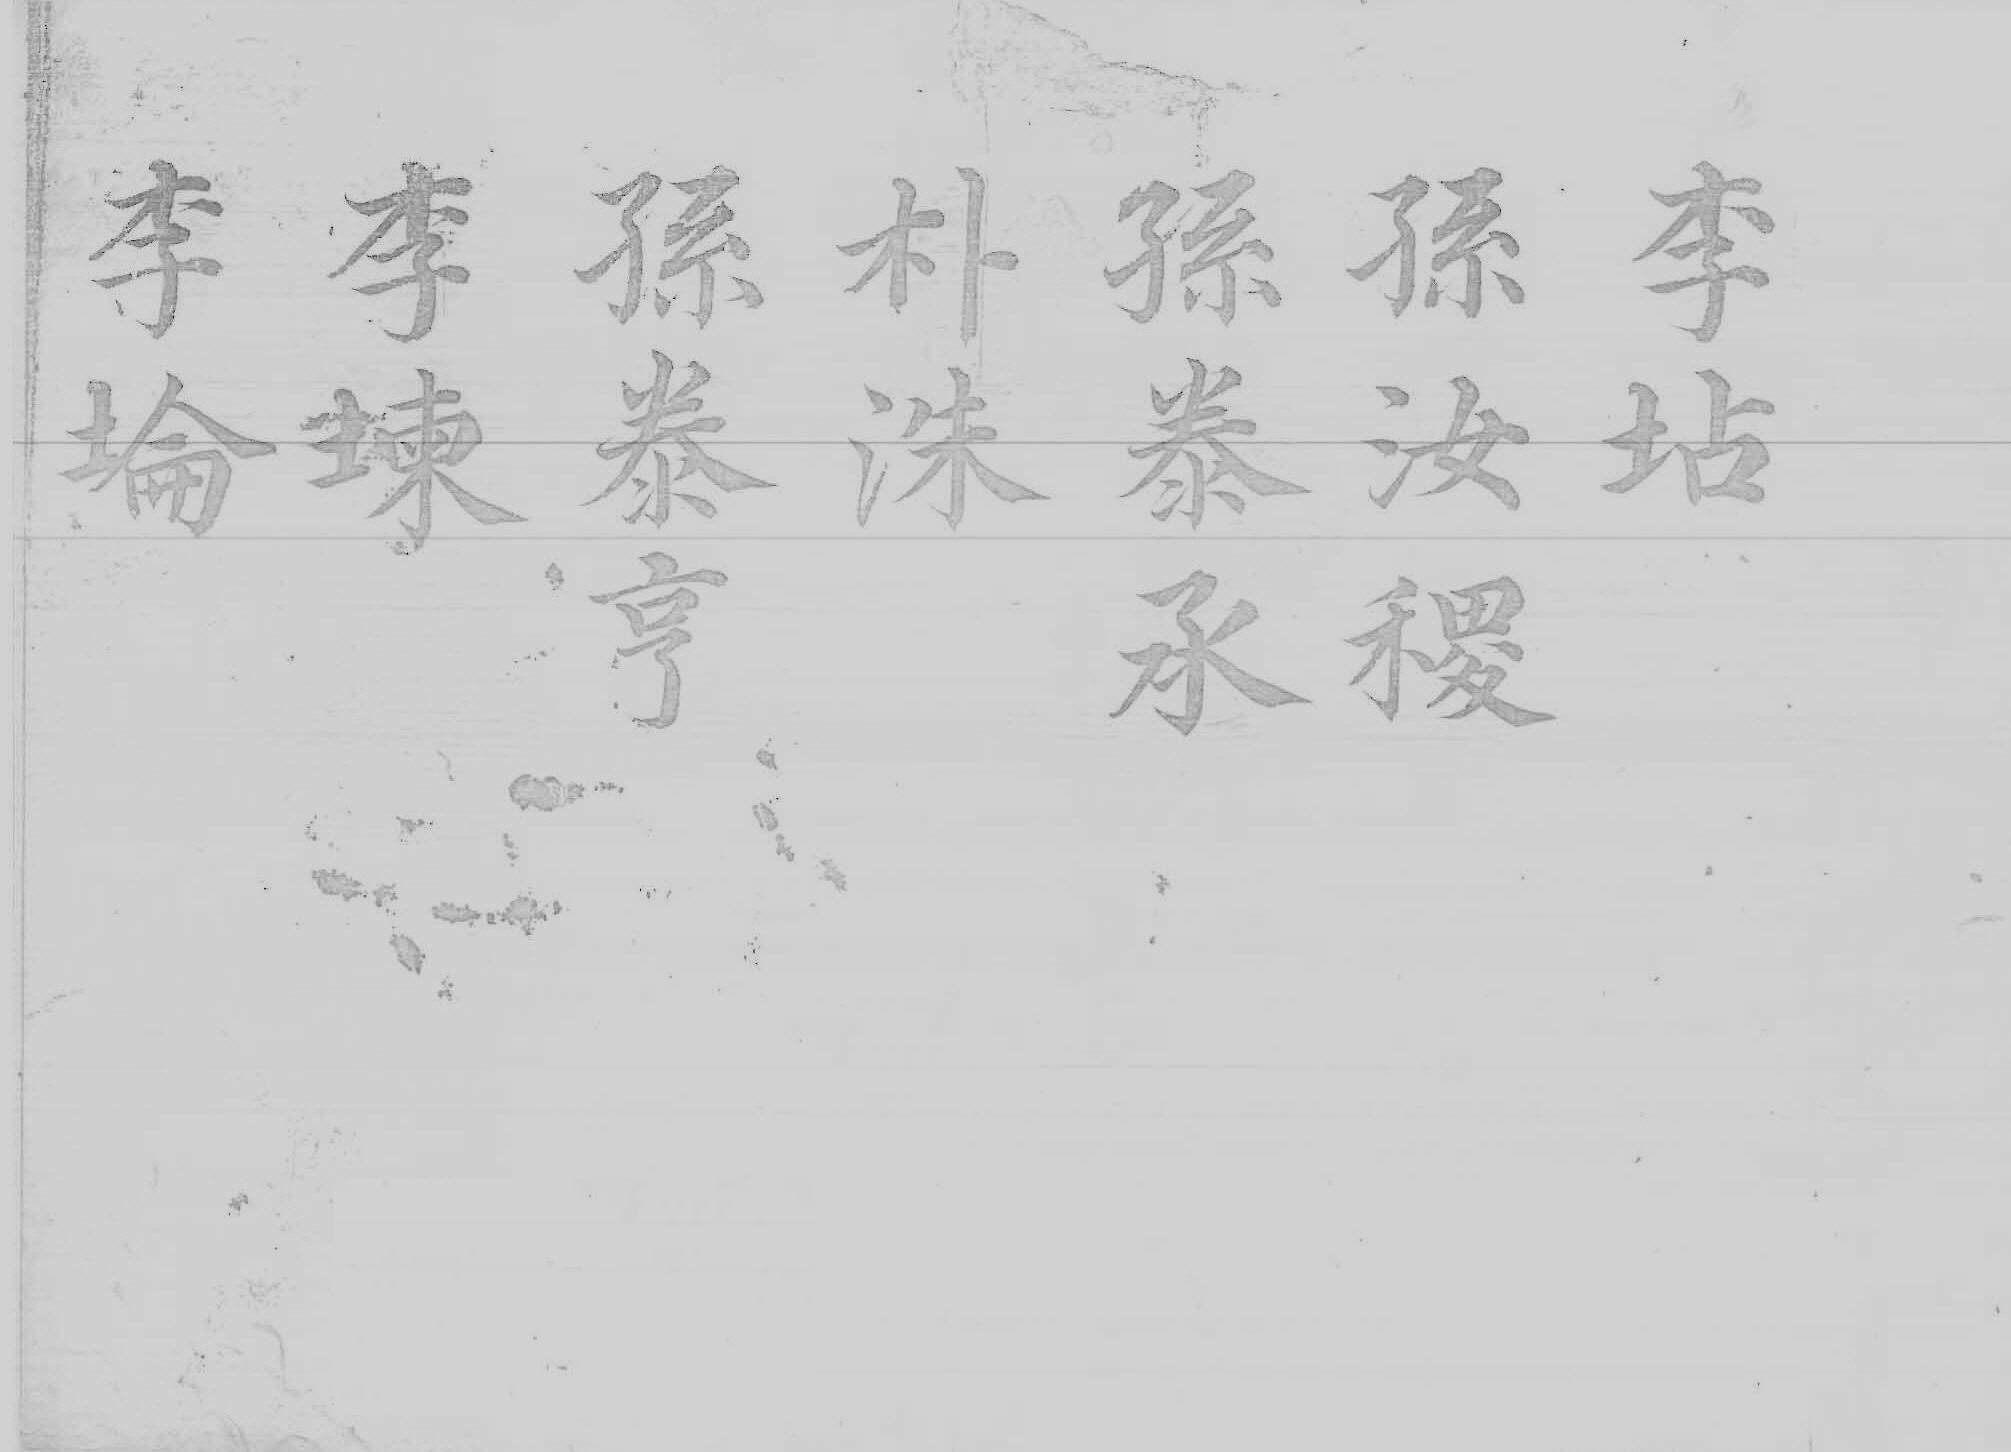 李坫
孫汝稷
孫泰承
朴洙
孫泰亨
李堜
李埨